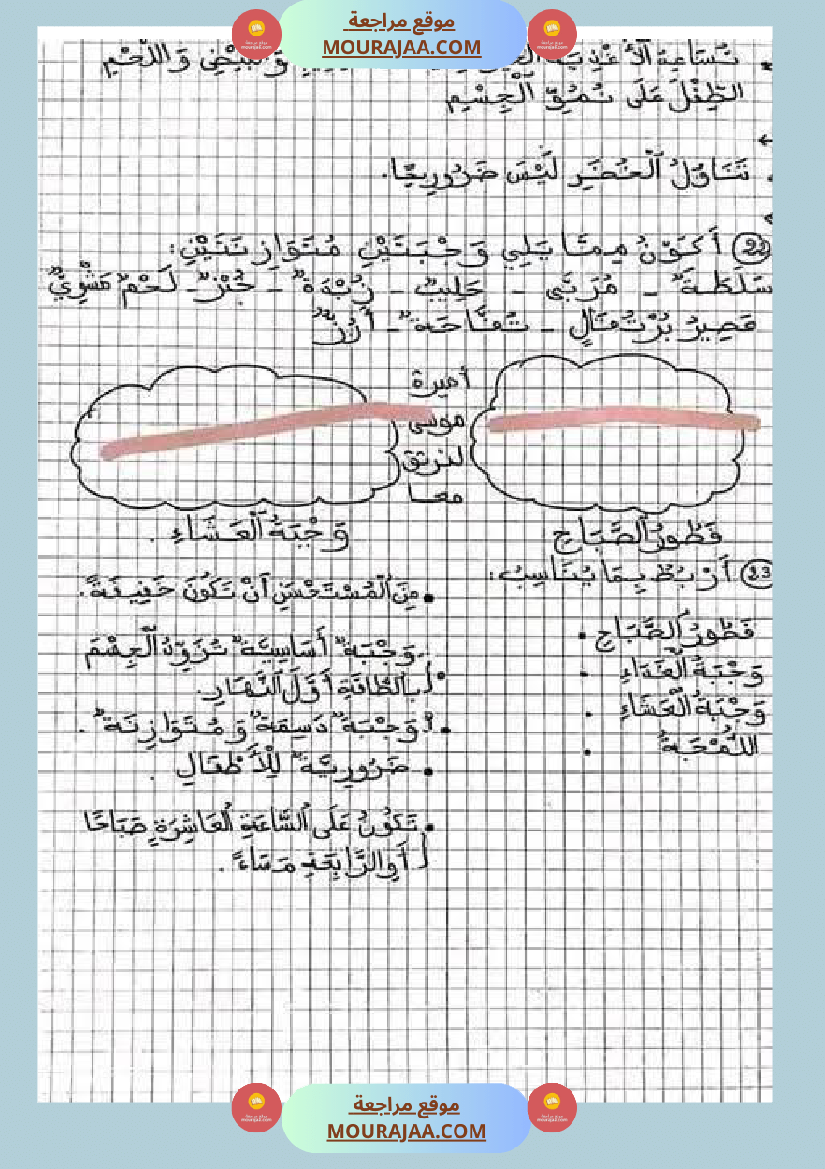 موقع مراجعة
MOURAJAA.COM
تُسَاعِدُ الْأَغْذِيَةُ وَالْبَيْضِ وَاللَّحْمِ
الطِّفْلَ عَلَى نُمُوِّ الْجِسْمِ
تَنَاوُلُ الْخُضَرِ لَيْسَ ضَرُورِيًّا.
22 أُكَوِّنُ مِمَّا يَلِي وَجْبَتَيْنِ مُتَوَازِنَتَيْنِ:
سَلَطَةٌ - مُرَبَّى - حَلِيبٌ - زُبْدَةٌ - خُبْزٌ - لَحْمٌ مَشْوِيٌّ
عَصِيرُ بُرْتُقَالٍ - تُفَّاحَةٌ - أُرُزٌّ
أميرة
موسى
لنرتق
معا
فَطُورُ الصَّبَاحِ
وَجْبَةُ الْعَشَاءِ.
23 أَرْبُطُ بِمَا يُنَاسِبُ:
فَطُورُ الصَّبَاحِ •
وَجْبَةُ الْغَدَاءِ •
وَجْبَةُ الْعَشَاءِ •
اللُّمْجَةُ •
• مِنَ الْمُسْتَحْسَنِ أَنْ تَكُونَ خَفِيفَةً.
• وَجْبَةٌ أَسَاسِيَّةٌ تُزَوِّدُ الْجِسْمَ
بِالطَّاقَةِ أَوَّلَ النَّهَارِ.
• وَجْبَةٌ دَسِمَةٌ وَ مُتَوَازِنَةٌ.
• ضَرُورِيَّةٌ لِلْأَطْفَالِ.
• تَكُونُ عَلَى السَّاعَةِ الْعَاشِرَةِ صَبَاحًا
أَوِ الرَّابِعَةِ مَسَاءً.
موقع مراجعة
MOURAJAA.COM